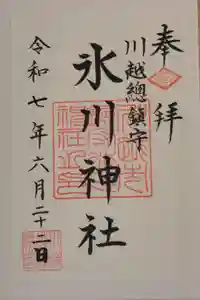 奉拝
川越總鎮守
氷川神社
令和七年六月二十二日